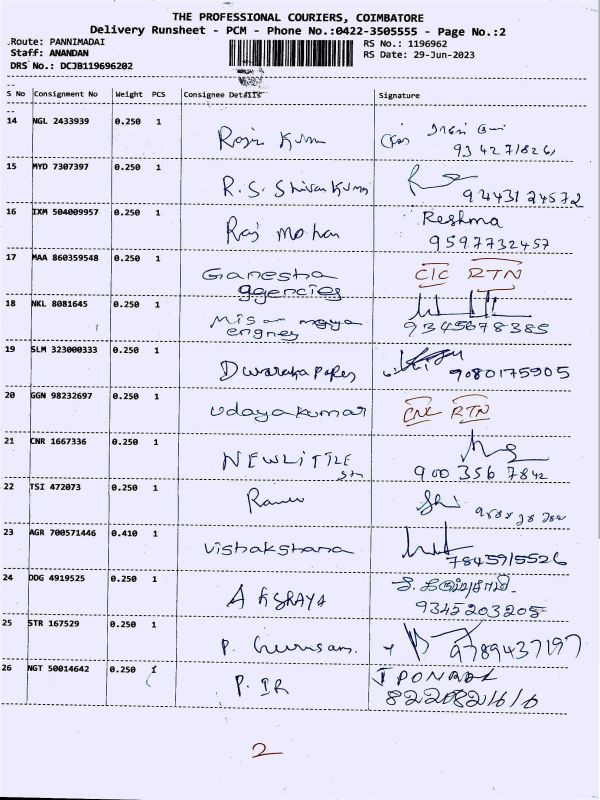 THE PROFESSIONAL COURIERS, COIMBATORE
Delivery Runsheet - PCM - Phone No.:0422-3505555 - Page No.:2
Route: PANNIMADAI
RS No.: 1196962
Staff: ANANDAN
RS Date: 29-Jun-2023
DRS No.: DCJB119696202
S No Consignment No Weight PCS Consignee Details Signature
14 NGL 2433939 0.250 1
15 MYD 7307397 0.250 1 R.S. Shivakumar 9443124572
16 IXM 504009957 0.250 1 Raj Mohan Reshma
9597732457
17 MAA 860359548 0.250 1 Ganesha CIC RTN
agencies
18 NKL 8081645 0.250 1 9345678385
19 SLM 323000333 0.250 1 Dwaraka 9080175905
20 GGN 98232697 0.250 1 Udayakumar CNC RTN
21 CNR 1667336 0.250 1 NEWLITTLE
900 356 7842
22 TSI 472073 0.250 1
23 AGR 700571446 0.410 1 Vishakshana 7845915526
24 DDG 4919525 0.250 1 AKSRAYA
9345203205
25 STR 167529 0.250 1 P. 9789437197
26 NGT 50014642 0.250 1 P. IR
2